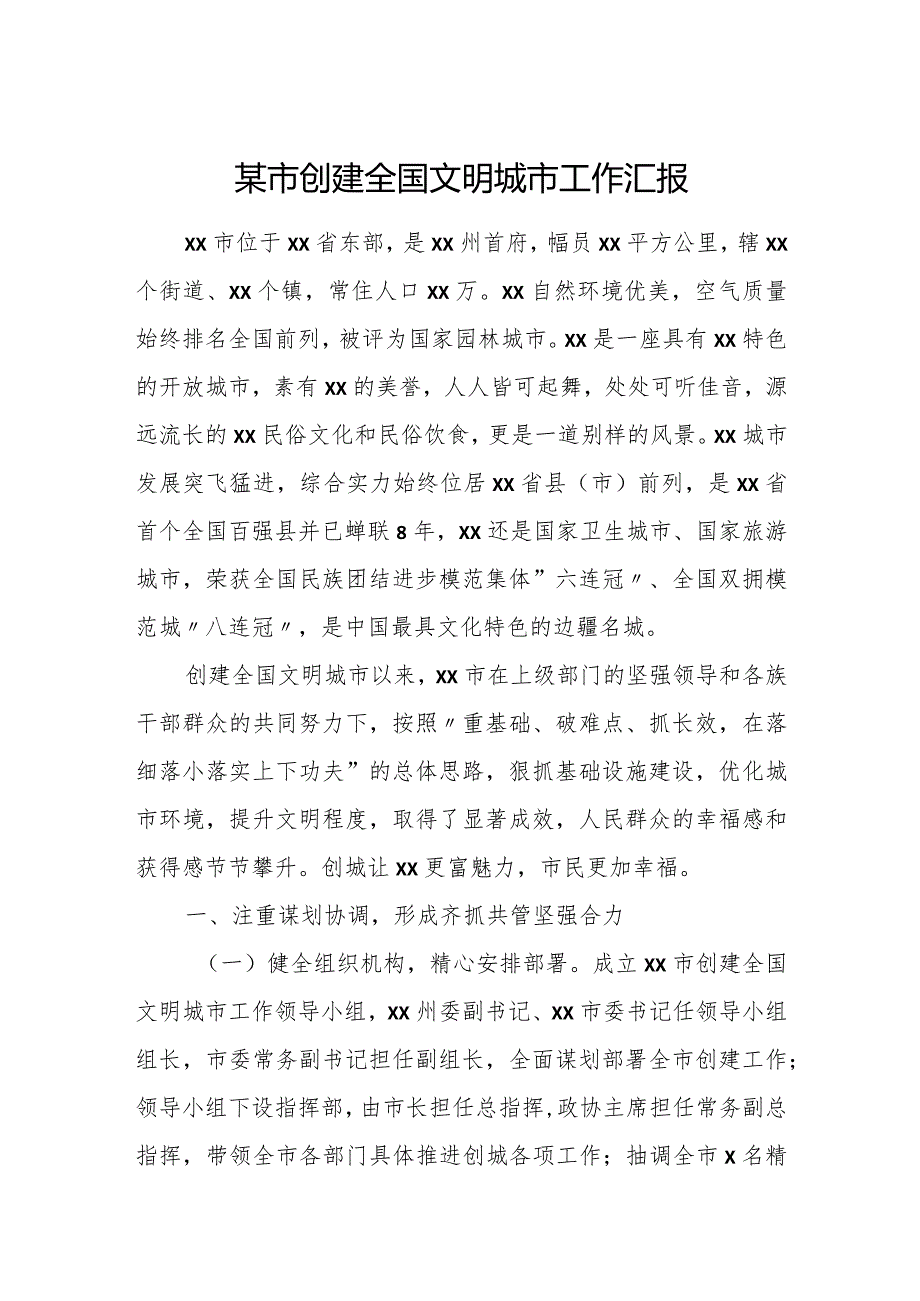 某市创建全国文明城市工作汇报
xx 市位于 xx 省东部，是 xx 州首府，幅员 xx 平方公里，辖 xx
个街道、xx 个镇，常住人口 xx 万。xx 自然环境优美，空气质量
始终排名全国前列，被评为国家园林城市。xx 是一座具有 xx 特色
的开放城市，素有 xx 的美誉，人人皆可起舞，处处可听佳音，源
远流长的 xx 民俗文化和民俗饮食，更是一道别样的风景。xx 城市
发展突飞猛进，综合实力始终位居 xx 省县（市）前列，是 xx 省
首个全国百强县并已蝉联 8 年，xx 还是国家卫生城市、国家旅游
城市，荣获全国民族团结进步模范集体”六连冠〃、全国双拥模
范城〃八连冠〃，是中国最具文化特色的边疆名城。
创建全国文明城市以来，xx 市在上级部门的坚强领导和各族
干部群众的共同努力下，按照〃重基础、破难点、抓长效，在落
细落小落实上下功夫”的总体思路，狠抓基础设施建设，优化城
市环境，提升文明程度，取得了显著成效，人民群众的幸福感和
获得感节节攀升。创城让 xx 更富魅力，市民更加幸福。
一、注重谋划协调，形成齐抓共管坚强合力
（一）健全组织机构，精心安排部署。成立 xx 市创建全国
文明城市工作领导小组，xx 州委副书记、xx 市委书记任领导小组
组长，市委常务副书记担任副组长，全面谋划部署全市创建工作；
领导小组下设指挥部,由市长担任总指挥,政协主席担任常务副总
指挥，带领全市各部门具体推进创城各项工作；抽调全市 x 名精